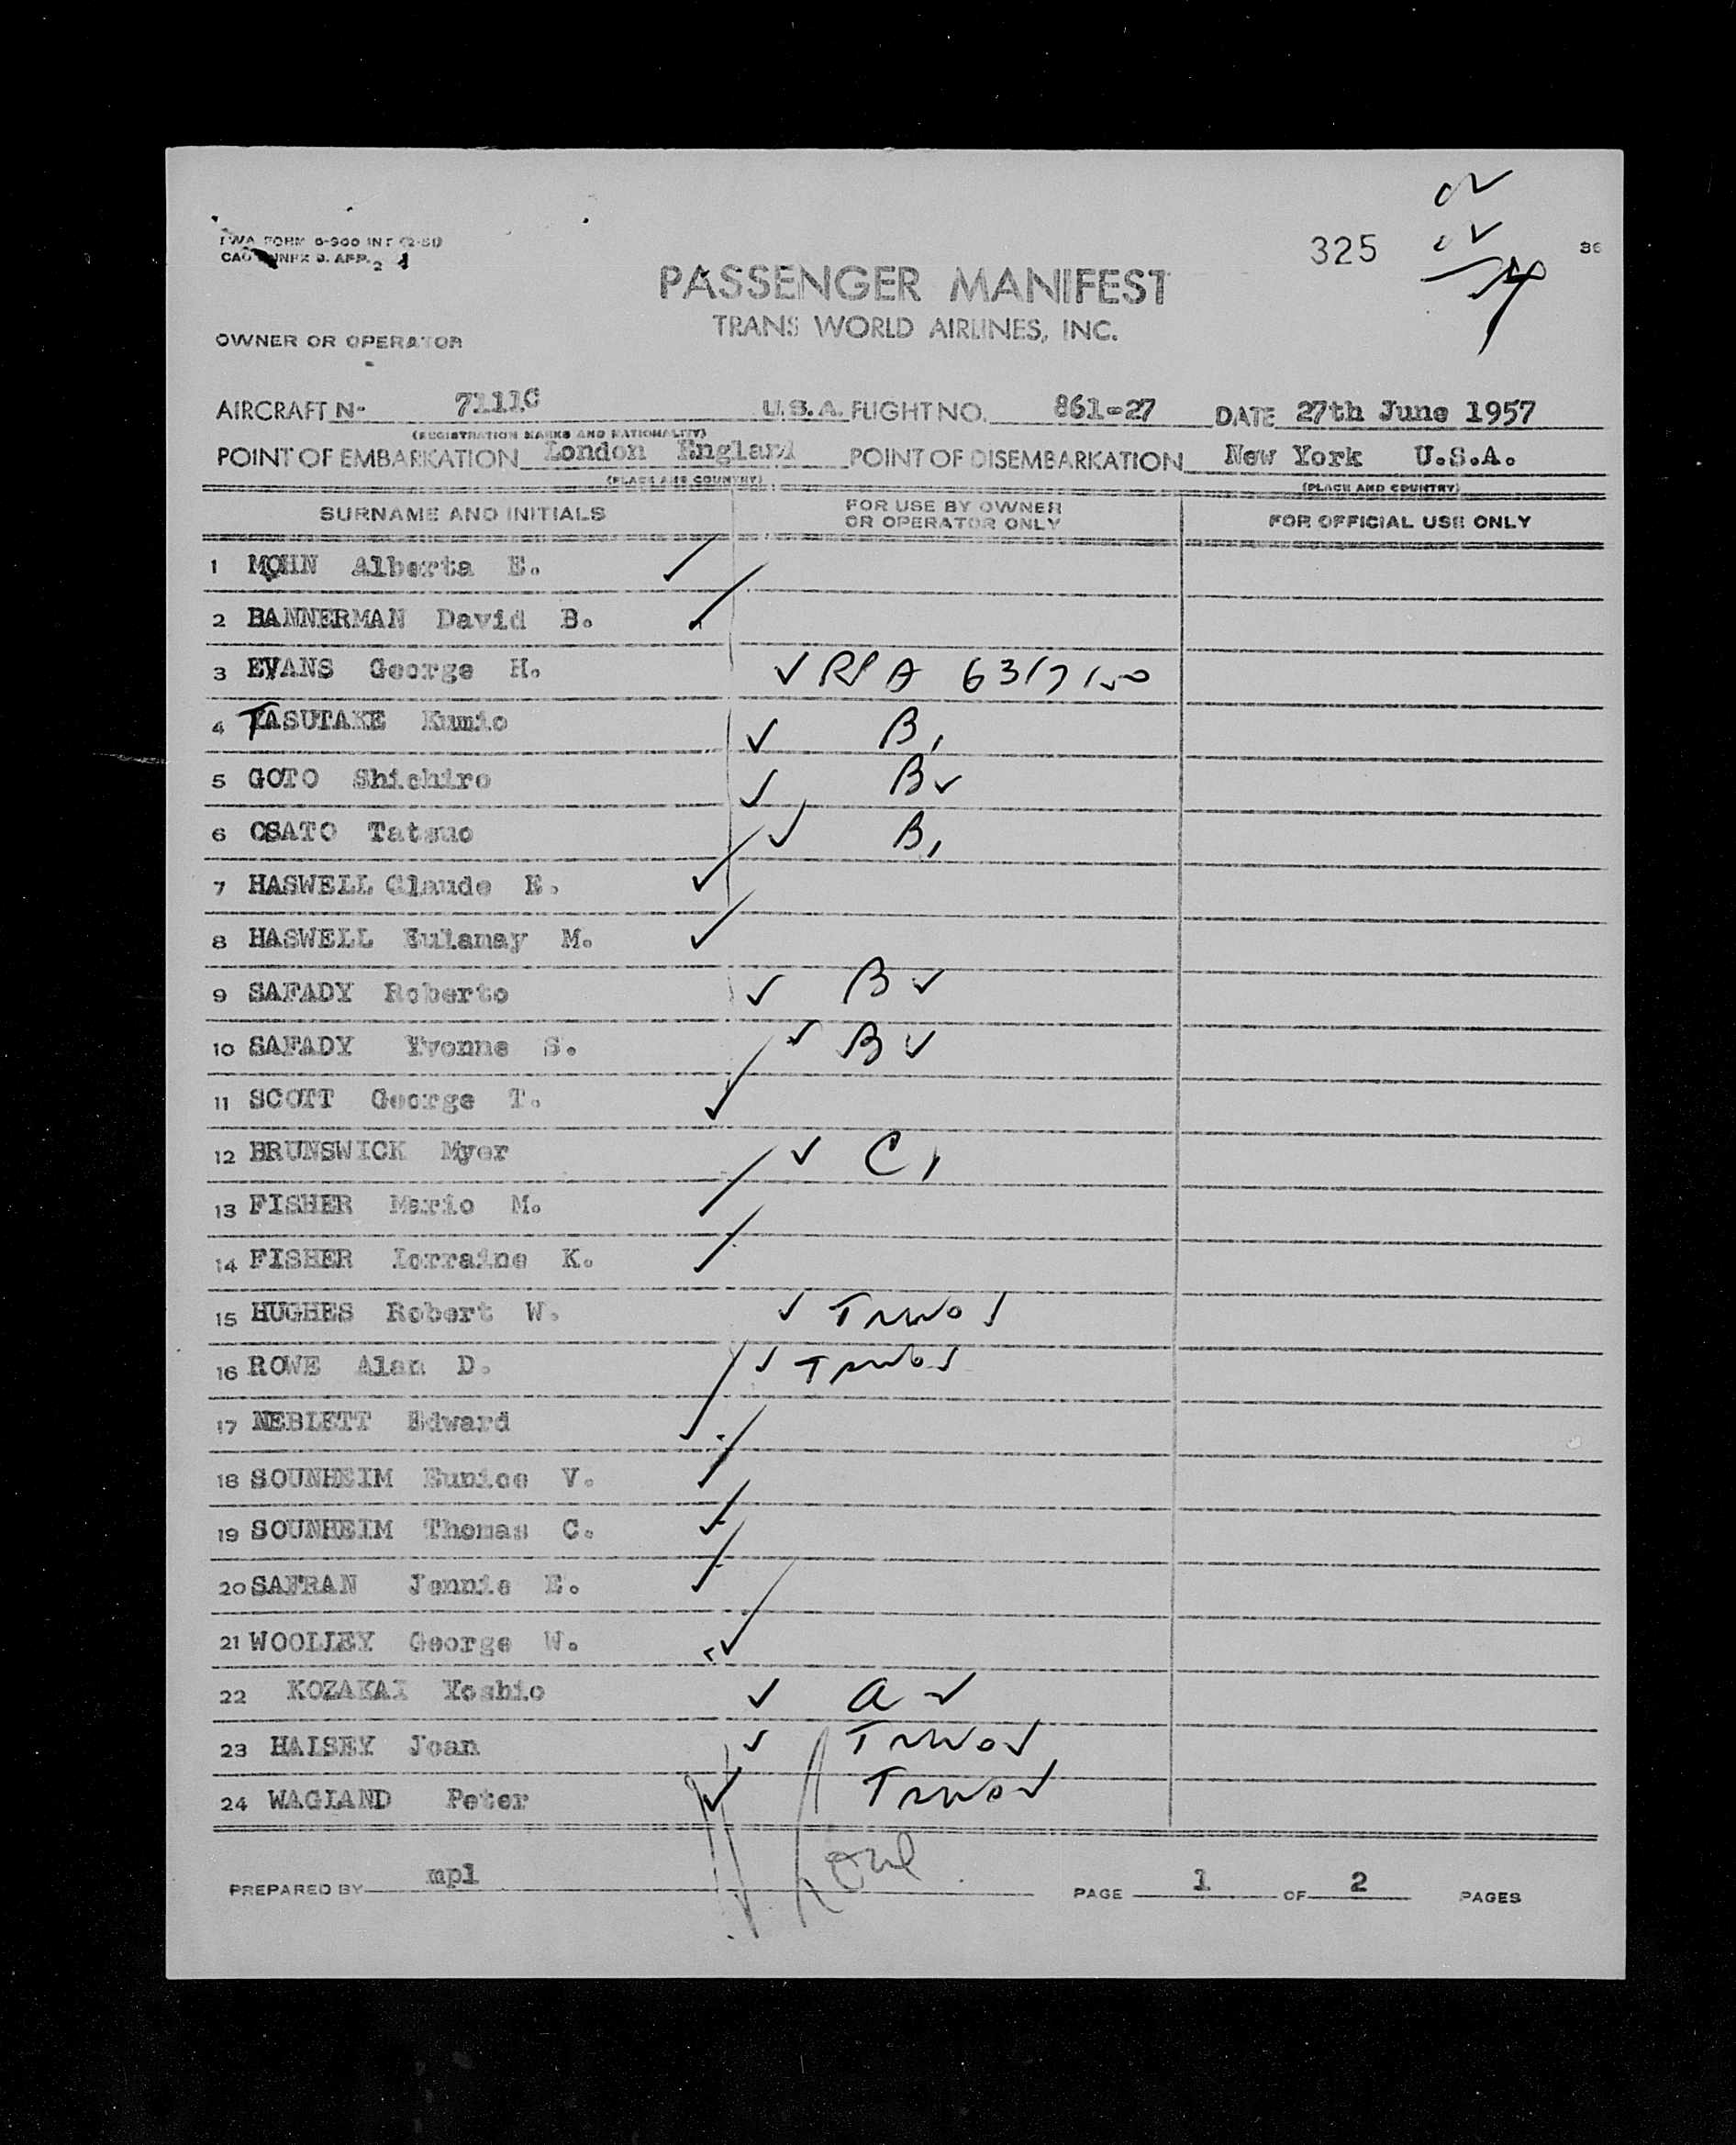 TWA FORM 0-900 INT (2-51)
325
36
PASSENGER MANIFEST
TRANS WORLD AIRLINES, INC.
OWNER OR OPERATOR
AIRCRAFT N- 7111C U.S.A. FLIGHT NO. 861-27 DATE 27th June 1957
(REGISTRATION MARKS AND NATIONALITY)
POINT OF EMBARKATION London England POINT OF DISEMBARKATION New York U.S.A.
(PLACE AND COUNTRY) (PLACE AND COUNTRY)
SURNAME AND INITIALS FOR USE BY OWNER OR OPERATOR ONLY FOR OFFICIAL USE ONLY
1 MOHN Alberta E.
2 BANNERMAN David B.
3 EVANS George H. ✓
4 TASUTAKE Kumio ✓ B1
5 GOTO Shichiro ✓ B✓
6 OSATO Tatsuo ✓ B1
7 HASWELL Claude E. ✓
8 HASWELL Eulamay M. ✓
9 SAFADY Roberto ✓ B ✓
10 SAFADY Yvonne S. ✓ B ✓
11 SCOTT George T. ✓
12 BRUNSWICK Myer ✓ C1
13 FISHER Mario M.
14 FISHER Lorraine K.
15 HUGHES Robert W. ✓
16 ROWE Alan D. ✓
17 NEBLETT Edward ✓
18 SOUNHEIM Eunice V.
19 SOUNHEIM Thomas C. ✓
20 SAFRAN Jennie E.
21 WOOLLEY George W. ✓
22 KOZAKAI Yoshio ✓ a ✓
23 HALSEY Joan ✓
24 WAGLAND Peter ✓
PREPARED BY mpl PAGE 1 OF 2 PAGES